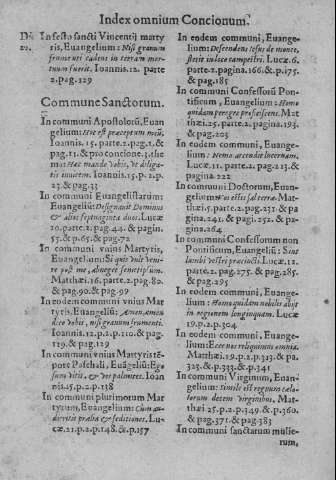 Index omnium Concionum.
Die In festo sancti Vincentij marty
22. ris, Euangelium: Nisi granum
frumenti cadens in terram mor-
tuum fuerit. Ioannis.12. parte
2.pag.129
Commune Sanctorum.
In communi Apostolorũ, Euan
gelium: Hoc est præceptum meũ.
Ioannis. 15. parte.2.pag.1. &
pag.11.& pro concione.3.the
ma: Hæc mando vobis, vt diliga-
tis inuicem. Ioannis.15.p.2.p.
23.& pag.33
In communi Euangelistarum:
Euangeliũ: Designauit Dominus
& alios septuaginta duos. Lucæ
10.parte.2.pag.44. & pagin.
55.& p.65.& pag.72
In communi vnius Martyris,
Euangelium: Si quis vult veni-
re post me, abneget semetipsum.
Matthæi.16.parte.2.pag.80.
& pag.90.& pag.99
In eodem communi vnius Mar
tyris, Euangeliũ: Amen, amen
dico vobis, nisi granum frumenti.
Ioannis.12.p.2.p.110.& pag.
119.& pag.129
In communi vnius Martyris tẽ-
pore Paschali, Euãgeliũ: Ego
sum vitis, & vos palmites. Ioan
nis.15.p.2.p.138
In communi plurimorum Mar
tyrum, Euangelium: Cum au-
dieritis prælia & seditiones. Lu-
cæ.21.p.2.p.148.& p.157
In eodem communi, Euange-
lium: Descendens Iesus de monte,
stetit in loco campestri. Lucæ 6.
parte.2.pagina.166.& p.175.
& pag.185
In communi Confessorũ Pon-
tificum, Euangelium: Homo
quidam peregre proficiscens. Mat
thæi.25.parte.2.pagina.193.
& pag.203
In eodem communi, Euange-
lium: Nemo accendit lucernam.
Lucæ.11. parte.2.pag.223.&
pagina 222
In communi Doctorum, Euan-
gelium: Vos estis sal terræ. Mat-
thæi.5.parte.2.pag.231 & pa
gina.241.& pagi.252. & pa-
gina.264
In communi Confessorum non
Pontificum, Euangeliũ: Sint
lumbi vestri præcincti. Lucæ.12.
parte.2. pag.275. & pag.285.
& pag.295
In eodem communi, Euange-
lium: Homo quidam nobilis abijt
in regionem longinquam. Lucæ
19.p.2.p.304
In eodem communi, Euange-
lium: Ecce nos reliquimus omnia.
Matthæi.19.p.2.p.313.& pa.
325.& p.333.& p.341
In communi Virginum, Euan-
gelium: Simile est regnum cælo-
rum decem virginibus. Mat-
thæi 25.p.2.p.349.& p.360.
& pag.371.& pag.383
In communi sanctarum mulie-
rum,